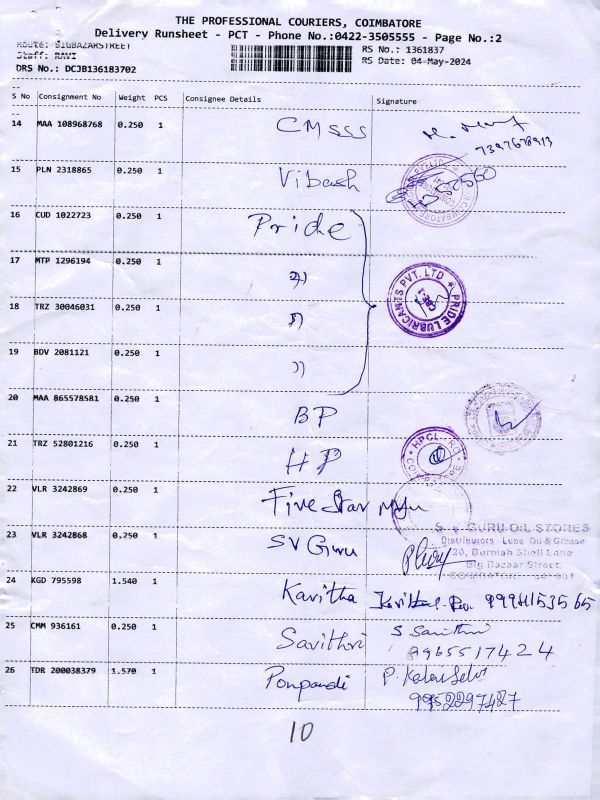 THE PROFESSIONAL COURIERS, COIMBATORE
Delivery Runsheet - PCT - Phone No.:0422-3505555 - Page No.:2
Route: BIGBAZARSTREET RS No.: 1361837
Staff: RAVI RS Date: 04-May-2024
DRS No.: DCJB136183702
S No Consignment No Weight PCS Consignee Details Signature
14 MAA 108968768 0.250 1 CMSSS
7397678913
15 PLN 2318865 0.250 1 Vibash
16 CUD 1022723 0.250 1 Pride
17 MTP 1296194 0.250 1 ))
PRIDE LUBRICANTS PVT. LTD
18 TRZ 30046031 0.250 1 ))
19 BDV 2081121 0.250 1 ))
20 MAA 865578581 0.250 1 BP
21 TRZ 52801216 0.250 1 HP HPCL
22 VLR 3242869 0.250 1 Five Star
23 VLR 3242868 0.250 1 SV Guru
GURU OIL STORES
Distributors Lube Oil & Grease
20, Burmah Shell Lane
Big Bazaar Street,
24 KGD 795598 1.540 1 Kavitha
25 CMM 936161 0.250 1 Savithri S. Savithri
8965517424
26 TDR 200038379 1.570 1 Ponpandi
9952297427
10